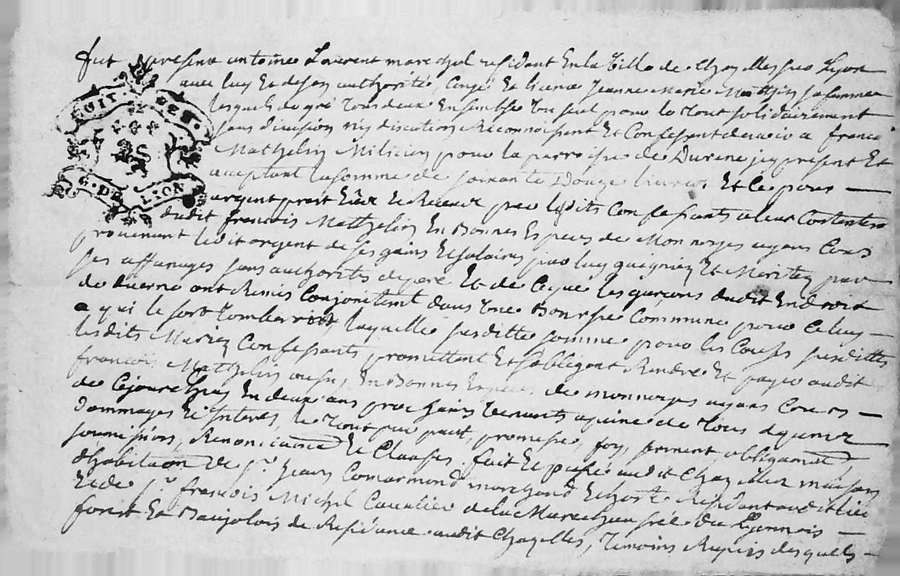 fut present antoine Laurent marechal residant En la Ville de Chazelles sur Lyon
avec luy Et de son authorité, Congé Et licence Jeanne Marie Mathelin sa femme
lesquels de gré Tous deux Ensemble Un seul pour le Tout solidairement
sans division ny discution Reconnoissent Et Confessent devoir a francois
Mathelin Milicien pour la parroisse de Duerne icy present Et
acceptant la somme de soixante Douze livres Et ce pour
argent presté Eüe Et Receue par lesdits Confessants a leur Contentement
dudit francois Mathelin En Bonnes Especes de Monnoyes ayans Cours
provenant ledit argent de ses gains Et salaires par luy gaignez Et Meritez par
ses affanages sans authorité de pere Et de Ce que les garcons dudit Endroit
de duerne ont Remis Conjointement dans Une Bourse Commune pour Celuy
a qui le sort Tomberoit laquelle susditte somme pour les Causes susdittes
lesdits Mariez Confessants promettent Et s'obligent Rendre Et payer audit
francois Mathelin En Bonnes Especes de monnoyes ayans Cours
de Cejourdhuy En deux ans prochains Venants a peine de Tous depens
Dommages Et Interets, le Tout par pact, promesse, foy, serment obligation
soumissions, Renonciations Et Clauses, fait Et passé audit Chazelles maison
d'habitation de Sr. Jean Comarmond marchand Residant audit lieu
Et de Sr. francois Michel Cavalier de la Marechaussée du Lyonnois
forest Et Baujolois de Residance audit Chazelles, Temoins Requis desquels
GEN. DE LION